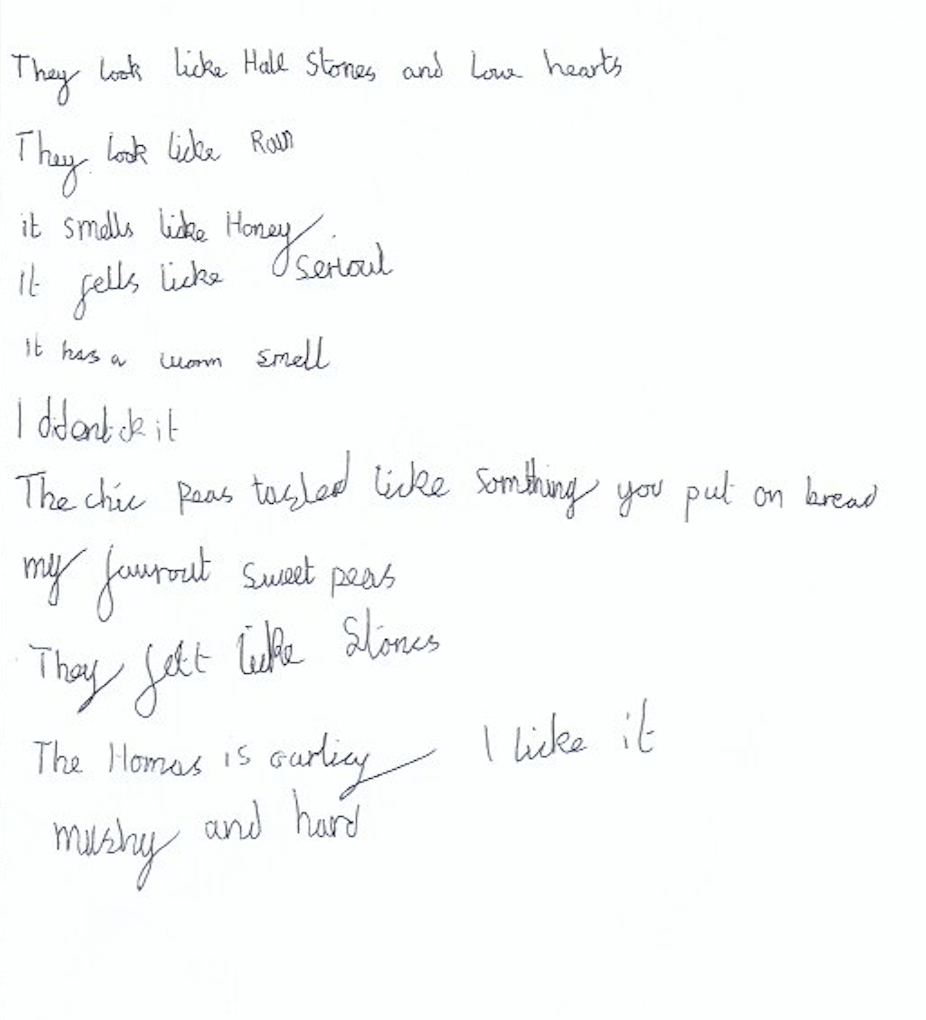 They look licke Hale Stones and Love hearts
They look licke Rain
it smells licke Honey
It fells licke serioul
It has a worm smell
I didant lick it
The chic peas tasted licke somthing you put on bread
my favrout sweet peas
They felt licke Stones
The Homas is garlicy I licke it
mushy and hard